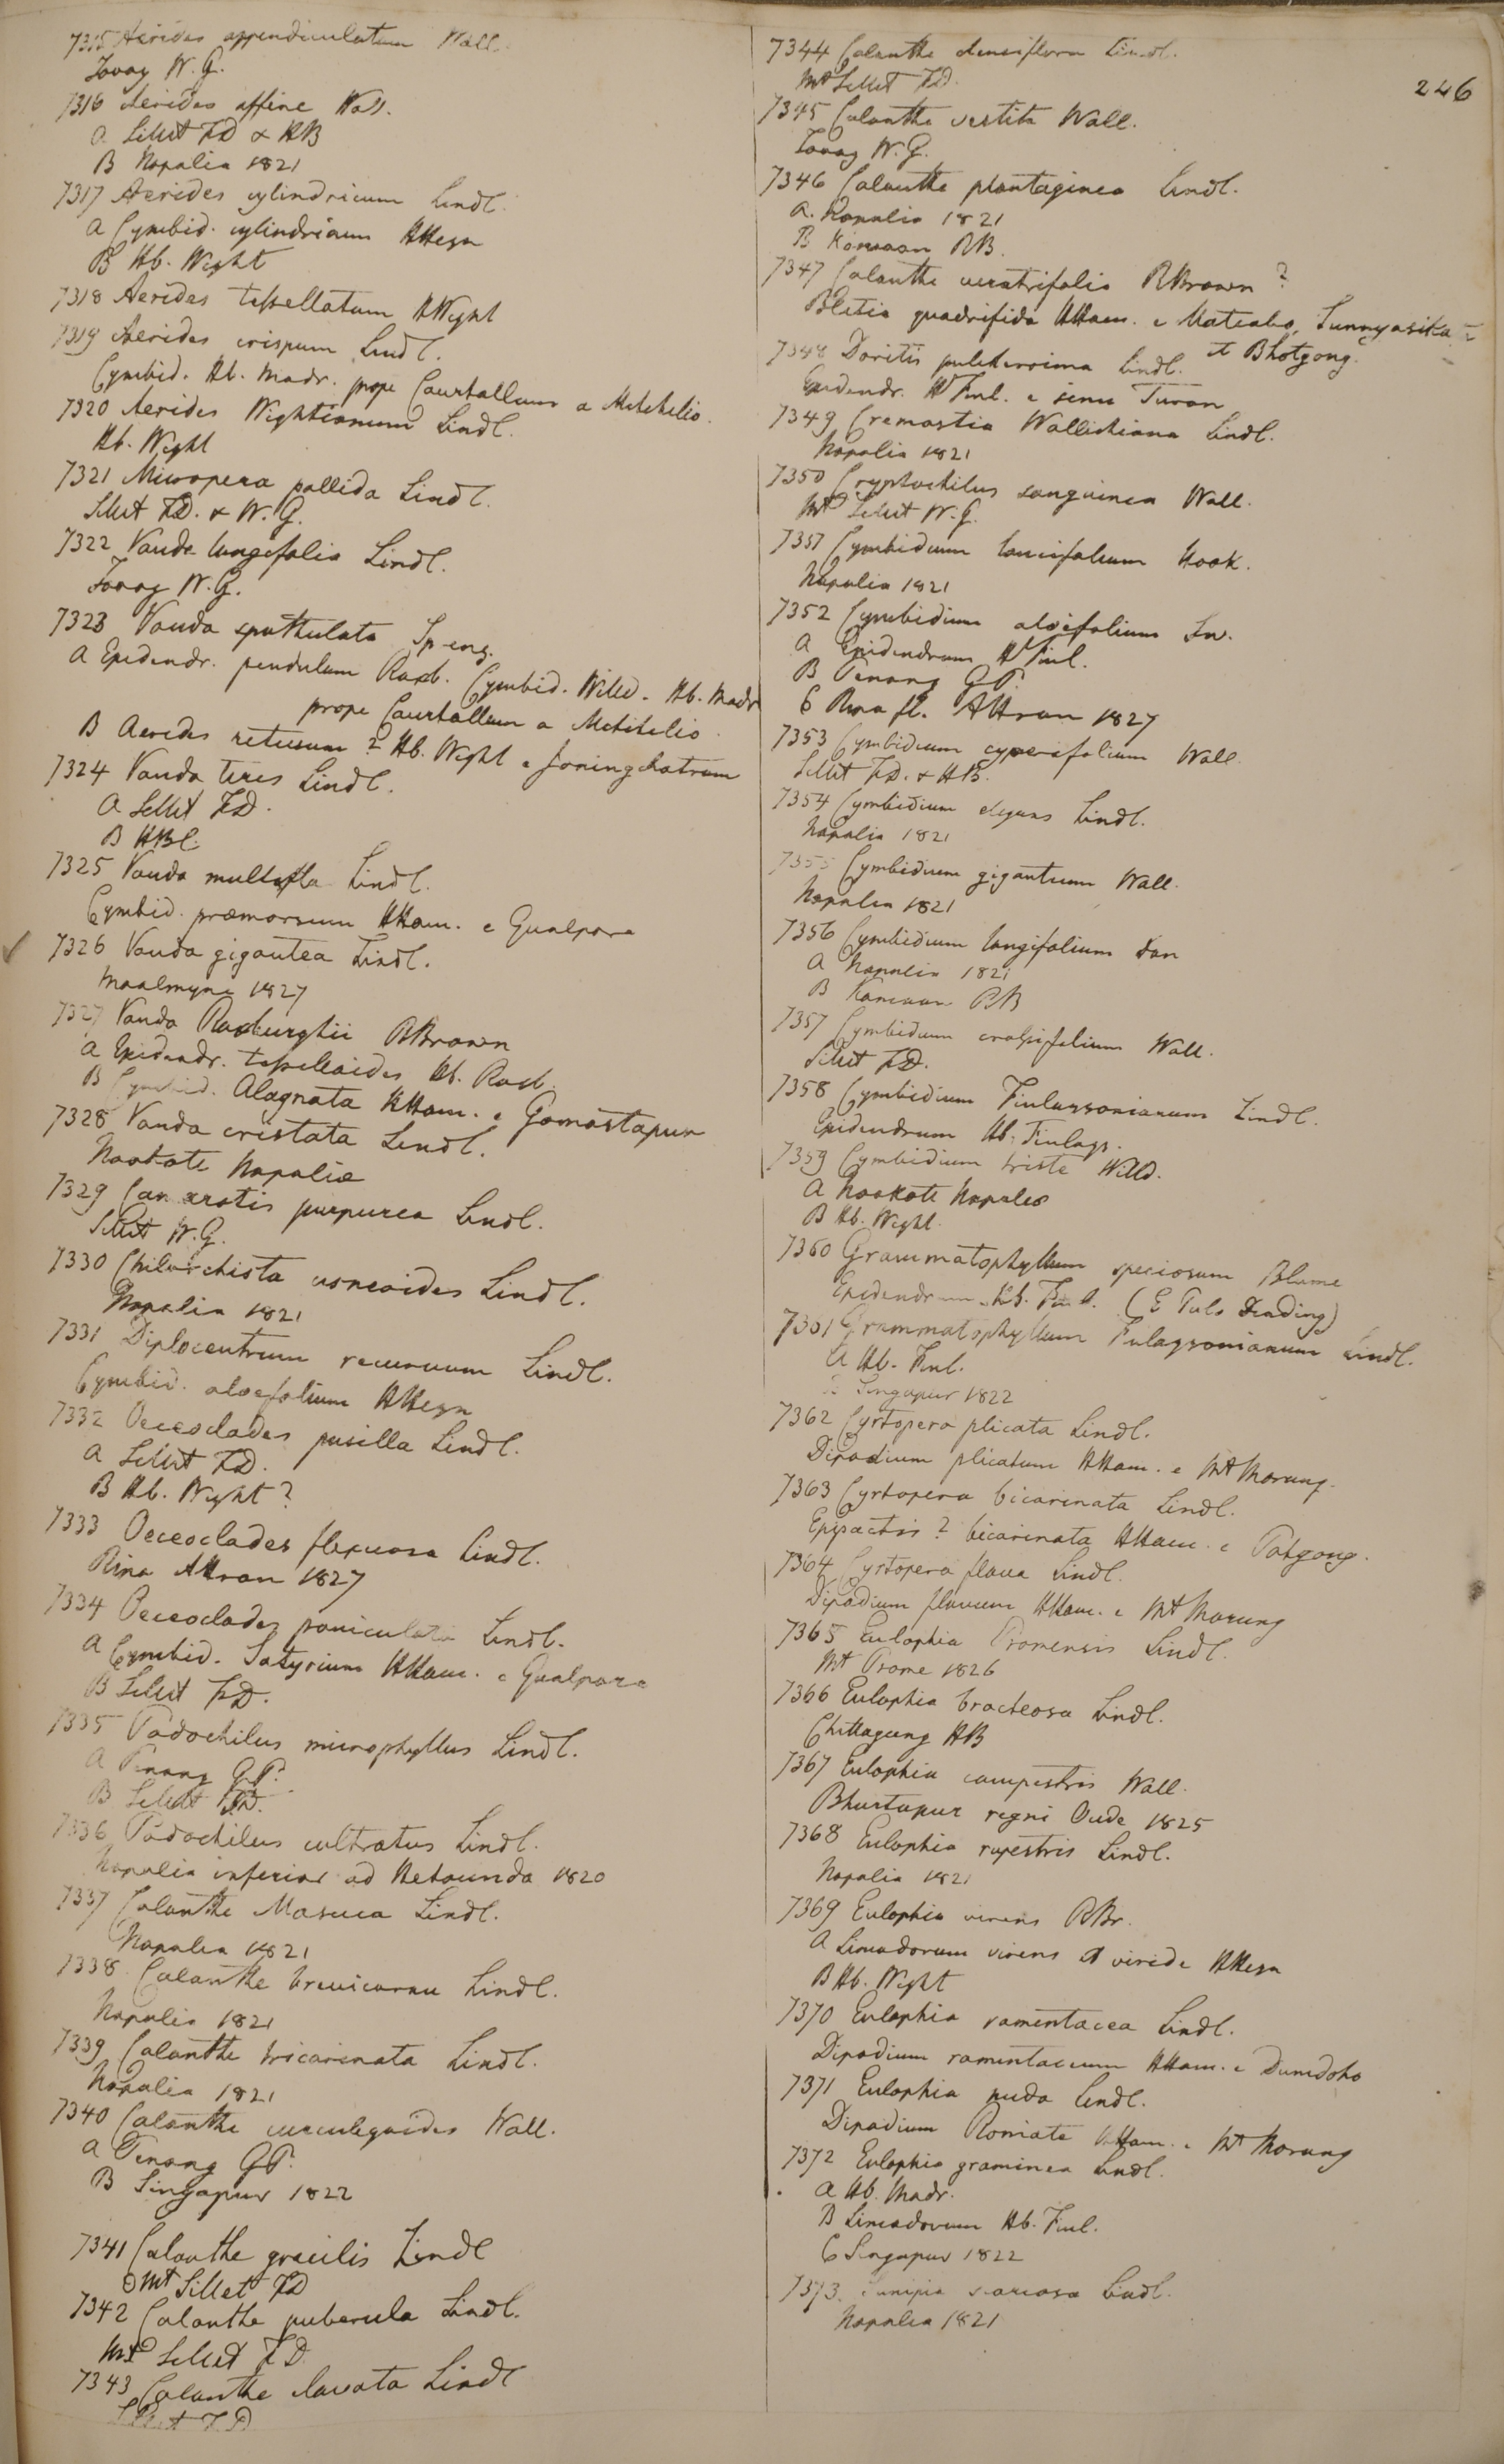 246
7315 Aerides appendiculatum Wall.
Tavoy W.G.
7316 Aerides affine Wall.
a Sillet FD & HB
B Napalia 1821
7317 Aerides cylindricum Lindl.
a Cymbid. cylindricum HHeyn
B Hb. Wight
7318 Aerides tessellatum HWight
7319 Aerides crispum Lindl.
Cymbid. Hb. Madr. prope Courtallum a Mitchelio.
7320 Aerides Wightianum Lindl.
Hb. Wight
7321 Micropera pallida Lindl.
Sillet FD. & W.G.
7322 Vanda longifolia Lindl.
Tavoy W.G.
7323 Vanda spathulata Spreng.
a Epidendr. pendulum Roxb. Cymbid. Willd. Hb. Madr
prope Courtallum a Mitchelio.
B Aerides retusum? Hb. Wight e Joninghatram
7324 Vanda teres Lindl.
a Sillet FD.
B HBC.
7325 Vanda multiflora Lindl.
Cymbid. præmorsum HHam. e Gualpara
7326 Vanda gigantea Lindl.
Moalmyne 1827
7327 Vanda Roxburghii RBrown
a Epidendr. tesselloides Hb. Roxb.
B Cymbid. Alagnata HHam. e Gomastapur
7328 Vanda cristata Lindl.
Noakote Napaliæ
7329 Camarotis purpurea Lindl.
Sillet W.G.
7330 Chilorchista usneoides Lindl.
Napalia 1821
7331 Diplocentrum recurvum Lindl.
Cymbid. aloefolium HHeyn
7332 Oeceoclades pusilla Lindl.
a Sillet FD.
B Hb. Wight?
7333 Oeceoclades flexuosa Lindl.
Ripa Attran 1827
7334 Oeceoclades paniculata Lindl.
a Cymbid. Satyrium HHam. e Gualpara
B Sillet FD.
7335 Podochilus microphyllus Lindl.
a Penang GP.
B Sillet FD.
7336 Podochilus cultratus Lindl.
Napalia inferior ad Hetounda 1820
7337 Calanthe Masuca Lindl.
Napalia 1821
7338 Calanthe brevicornu Lindl.
Napalia 1821
7339 Calanthe tricarinata Lindl.
Napalia 1821
7340 Calanthe curculigoides Wall.
a Penang GP.
B Singapur 1822
7341 Calanthe gracilis Lindl
Mt Sillet FD
7342 Calanthe puberula Lindl.
Mt Sillet FD
7343 Calanthe clavata Lindl
Sillet FD
7344 Calanthe densiflora Lindl.
Mt Sillet FD.
7345 Calanthe vestita Wall.
Tavoy W.G.
7346 Calanthe plantaginea Lindl.
a. Napalia 1821
B Kamaon RB.
7347 Calanthe veratrifolia RBrown?
Bletia quadrifida HHam. e Matiabo, Sunnyasika
et Bhotgong.
7348 Doritis pulcherrima Lindl.
Epidendr. H Finl. e sinu Turon
7349 Cremastra Wallichiana Lindl.
Napalia 1821
7350 Cryptochilus sanguinea Wall.
Mt Sillet W.G.
7351 Cymbidium lancifolium Hook.
Napalia 1821
7352 Cymbidium aloefolium Sw.
a Epidendrum H Finl.
B Penang GP.
C Ripa fl. Attran 1827
7353 Cymbidium cyperifolium Wall.
Sillet FD. & HB.
7354 Cymbidium elegans Lindl.
Napalia 1821
7355 Cymbidium giganteum Wall.
Napalia 1821
7356 Cymbidium longifolium Don
a Napalia 1821
B Kamaon RB
7357 Cymbidium crassifolium Wall.
Sillet FD.
7358 Cymbidium Finlaysonianum Lindl.
Epidendrum Hb. Finlays.
7359 Cymbidium triste Willd.
a Noakote Napalia
B Hb. Wight.
7360 Grammatophyllum speciosum Blume
Epidendrum Hb. Finl. (E Pulo Dinding)
7361 Grammatophyllum Finlaysonianum Lindl.
a Hb. Finl.
B Singapur 1822
7362 Cyrtopera plicata Lindl.
Dipodium plicatum HHam. e Mt Morung.
7363 Cyrtopera bicarinata Lindl.
Epipactis? bicarinata HHam. e Patgong.
7364 Cyrtopera flava Lindl.
Dipodium flavum HHam. e Mt Morung
7365 Eulophia Promensis Lindl.
Mt Prome 1826
7366 Eulophia bracteosa Lindl.
Chittagong HB
7367 Eulophia campestris Wall.
Bhurtapur regni Oude 1825
7368 Eulophia rupestris Lindl.
Napalia 1821
7369 Eulophia virens RBr.
a Limodorum virens et viride HHeyn
B Hb. Wight
7370 Eulophia ramentacea Lindl.
Dipodium ramentaceum HHam. e Dumdoho
7371 Eulophia nuda Lindl.
Dipodium Roniate HHam. e Mt Morung
7372 Eulophia graminea Lindl.
a Hb. Madr.
B Limodorum Hb. Finl.
C Singapur 1822
7373 Sunipia scariosa Lindl.
Napalia 1821